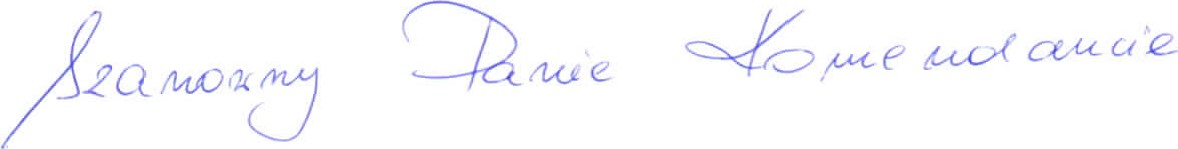 Szanowny Panie Komendancie